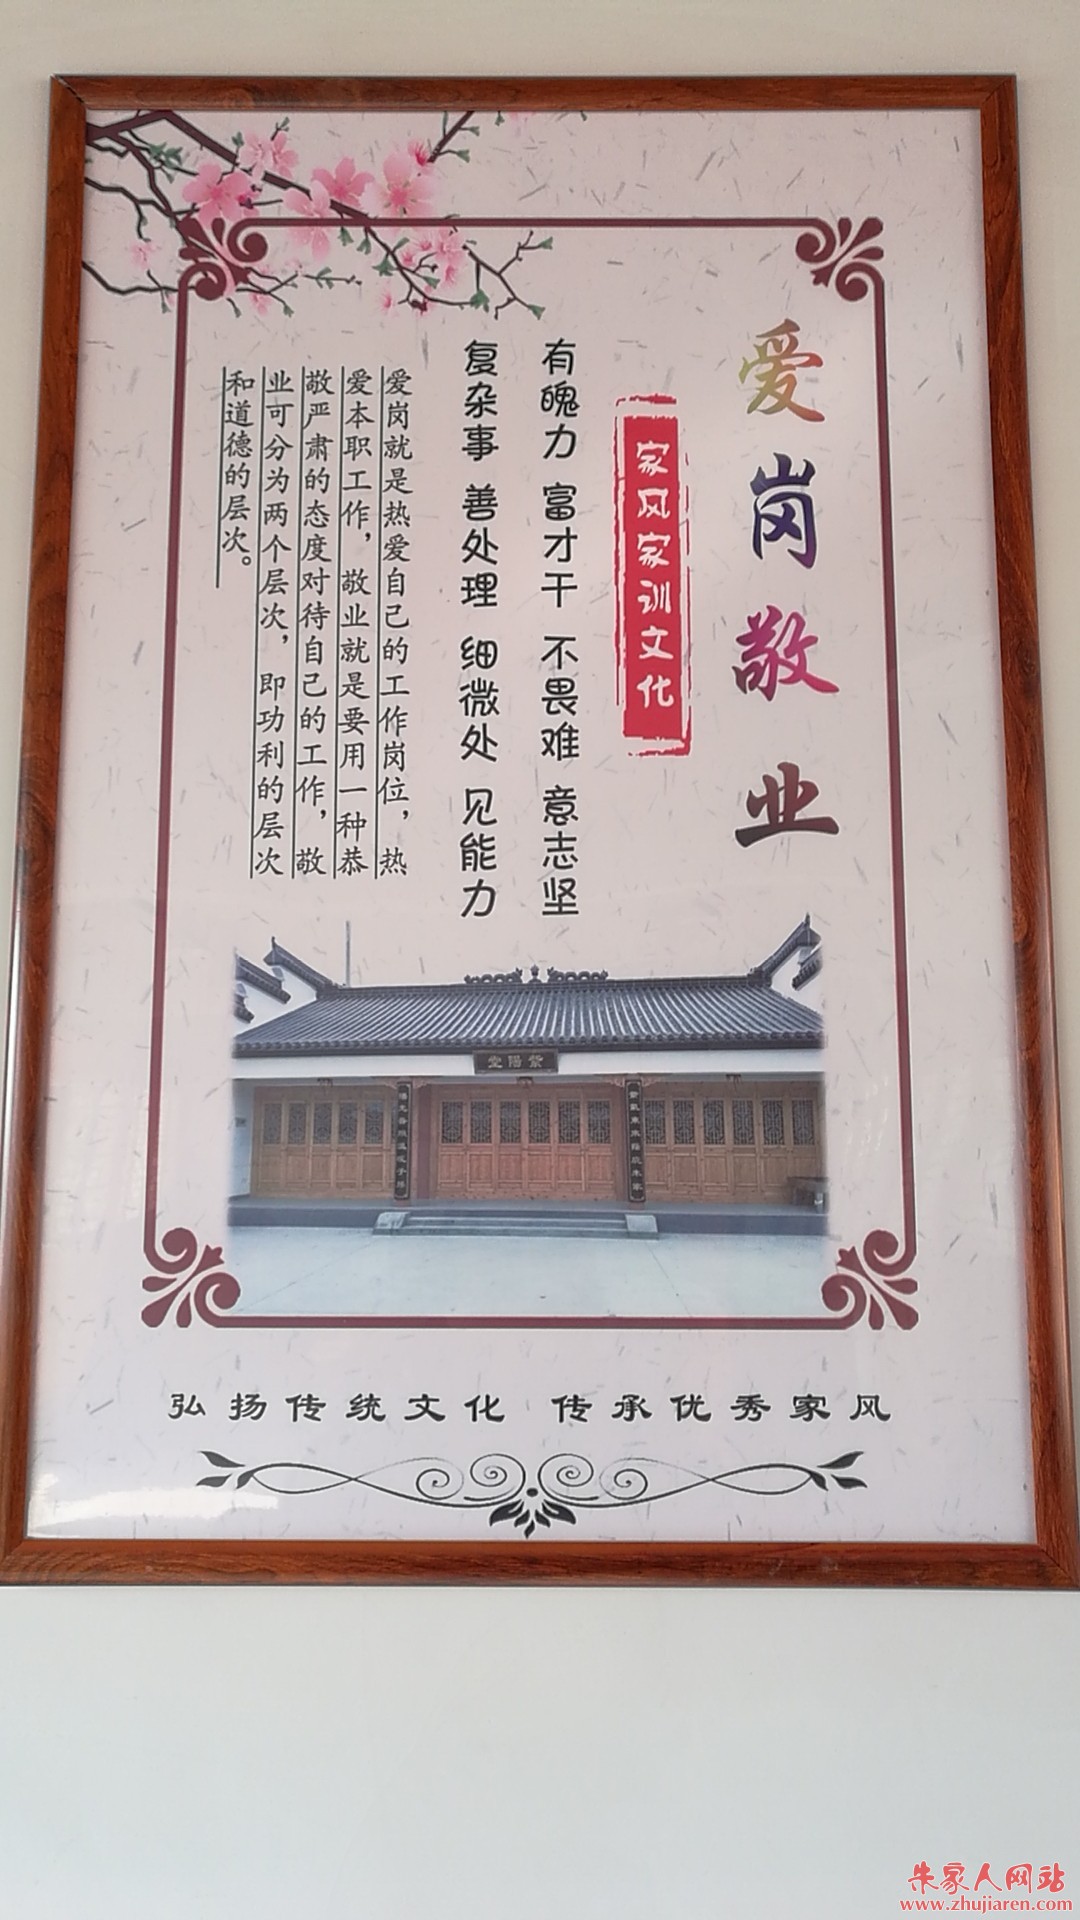 爱岗敬业
家风家训文化
有魄力 富才干 不畏难 意志坚
复杂事 善处理 细微处 见能力
爱岗就是热爱自己的工作岗位，热
爱本职工作，敬业就是要用一种恭
敬严肃的态度对待自己的工作，敬
业可分为两个层次，即功利的层次
和道德的层次。
堂陽紫
弘扬传统文化 传承优秀家风
朱家人网站
www.zhujiaren.com